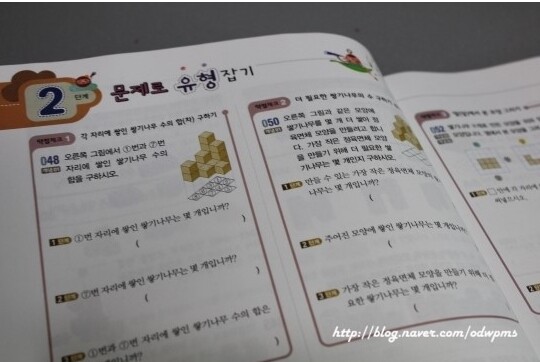 2
단계
문제로 유형 잡기
해결하고 1
각 자리에 쌓인 쌓기나무 수의 합(차) 구하기
048 오른쪽 그림에서 ①번과 ⑦번
자리에 쌓인 쌓기나무 수의
합을 구하시오.
1 단계 ①번 자리에 쌓인 쌓기나무는 몇 개입니까?
( )
2 단계 ⑦번 자리에 쌓인 쌓기나무는 몇 개입니까?
( )
3 단계 ①번과 ⑦번 자리에 쌓인 쌓기나무 수의 합은
몇 개입니까?
2
더 필요한 쌓기나무의 수 구하기
050 오른쪽 그림과 같은 모양에
쌓기나무를 몇 개 더 쌓아 정
육면체 모양을 만들려고 합니
다. 가장 작은 정육면체 모양
을 만들기 위해 더 필요한 쌓
기나무는 몇 개인지 구하시오.
1 단계 만들 수 있는 가장 작은 정육면체 모양의
쌓기나무는 몇 개입니까?
(
2 단계 주어진 모양에 쌓인 쌓기나무는 몇 개입니까?
(
3 단계 가장 작은 정육면체 모양을 만들기 위해 더
요한 쌓기나무는 몇 개입니까?
(
052
1 단계
http://blog.naver.com/odwpms